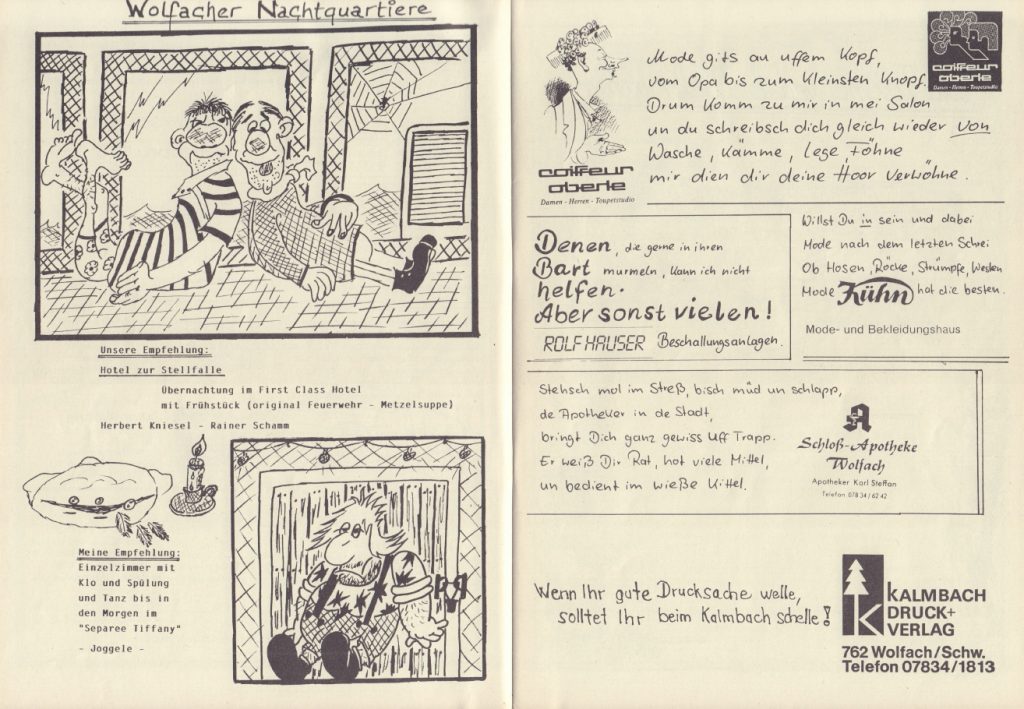 Wolfacher Nachtquartiere
Unsere Empfehlung:
Hotel zur Stellfalle
Übernachtung im First Class Hotel
mit Frühstück (original Feuerwehr - Metzelsuppe)
Herbert Kniesel - Rainer Schamm
Meine Empfehlung:
Einzelzimmer mit
Klo und Spülung
und Tanz bis in
den Morgen im
"Separee Tiffany"
- Joggele -
coiffeur
oberle
Damen - Herren - Toupetstudio
Mode gits au uffem Kopf,
vom Opa bis zum Kleinsten Knopf.
Drum Komm zu mir in mei Salon
un du schreibsch dich gleich wieder von
Wasche, Kämme, Lege, Föhne
mir dien dir deine Hoor verwöhne.
coiffeur
oberle
Damen - Herren - Toupetstudio
Denen, die gerne in ihren
Bart murmeln, kann ich nicht
helfen.
Aber sonst vielen!
ROLF HAUSER Beschallungsanlagen.
Willst Du in sein und dabei
Mode nach dem letzten Schrei
Ob Hosen, Röcke, Strümpfe, Westen
Mode Kühn hat die besten.
Mode- und Bekleidungshaus
Stehsch mol im Streß, bisch müd un schlapp,
de Apotheker in de Stadt,
bringt Dich ganz gewiss Uff Trapp.
Er weiß Dir Rat, hot viele Mittel,
un bedient im wieße Kittel.
A
Schloß-Apotheke
Wolfach
Apotheker Karl Steffan
Telefon 078 34/62 42
Wenn Ihr gute Drucksache welle,
solltet Ihr beim Kalmbach schelle!
K
KALMBACH
DRUCK+
VERLAG
762 Wolfach/Schw.
Telefon 07834/1813